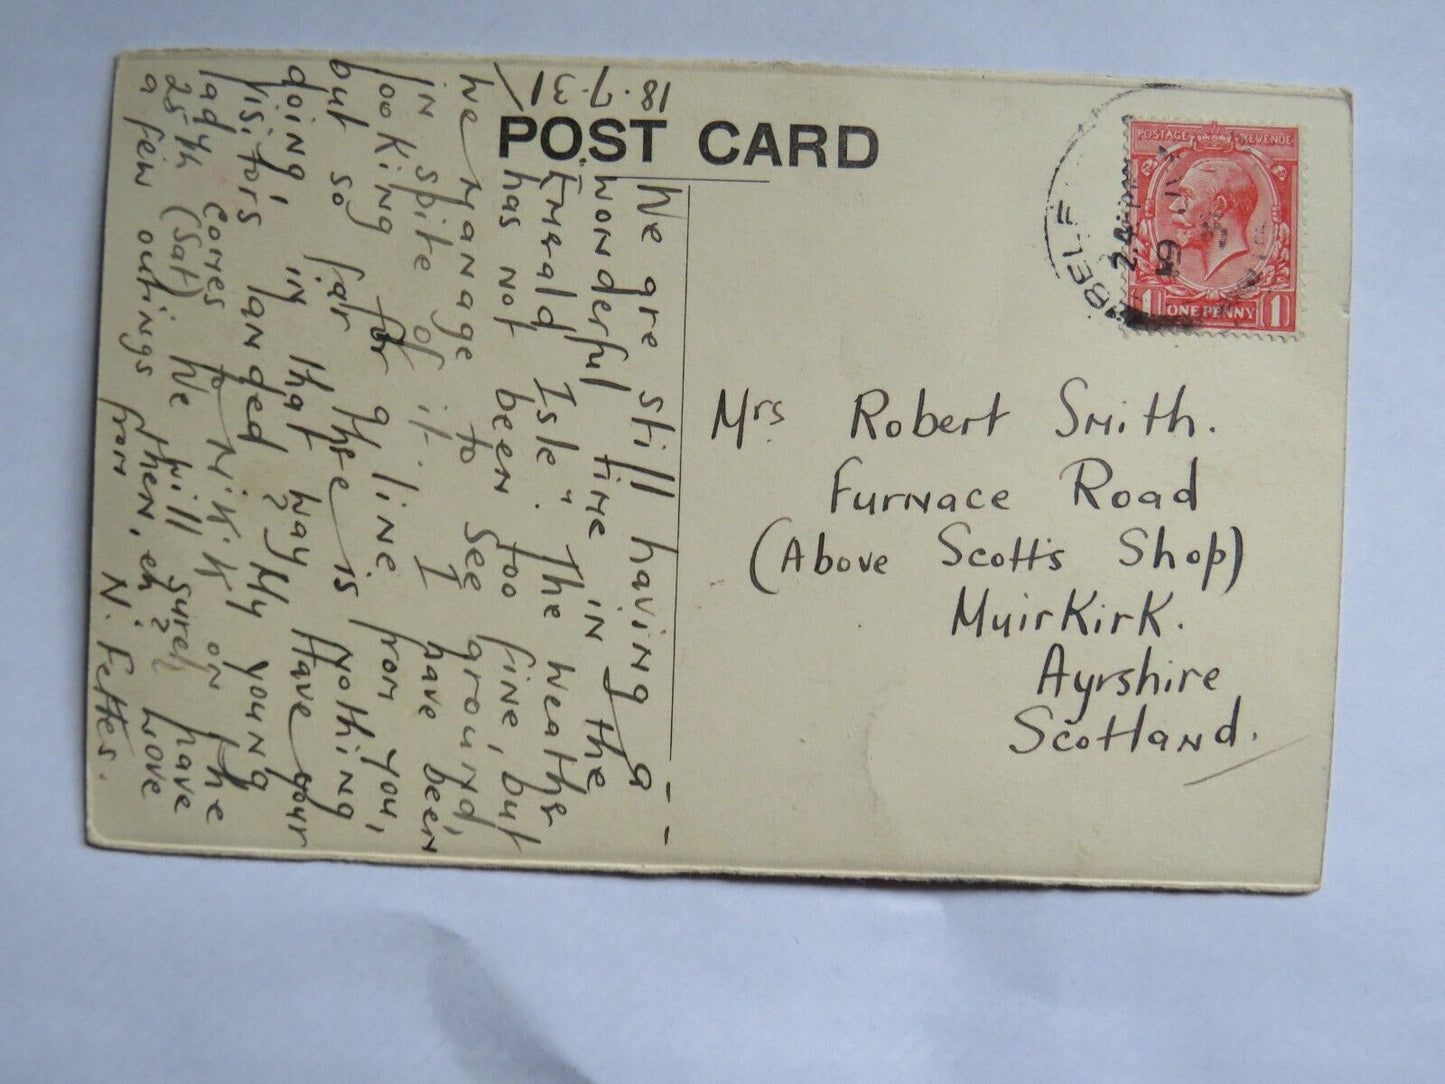 POST CARD
18.7.31/
We are still having a
wonderful time in the
"Emerald Isle". The weather
has not been too fine, but
we manage to see around,
in spite of it. I have been
looking for a line from you,
but so far there is nothing
doing, in that way. Have your
visitors landed? My young
lady comes to N.K.K. on the
25th (Sat) We will surely have
a few outings then, eh? Love
from N. Fettes.
POSTAGE REVENUE
1 ONE PENNY 1
BELF
Mrs Robert Smith.
Furnace Road
(Above Scott's Shop)
Muirkirk.
Ayrshire
Scotland.